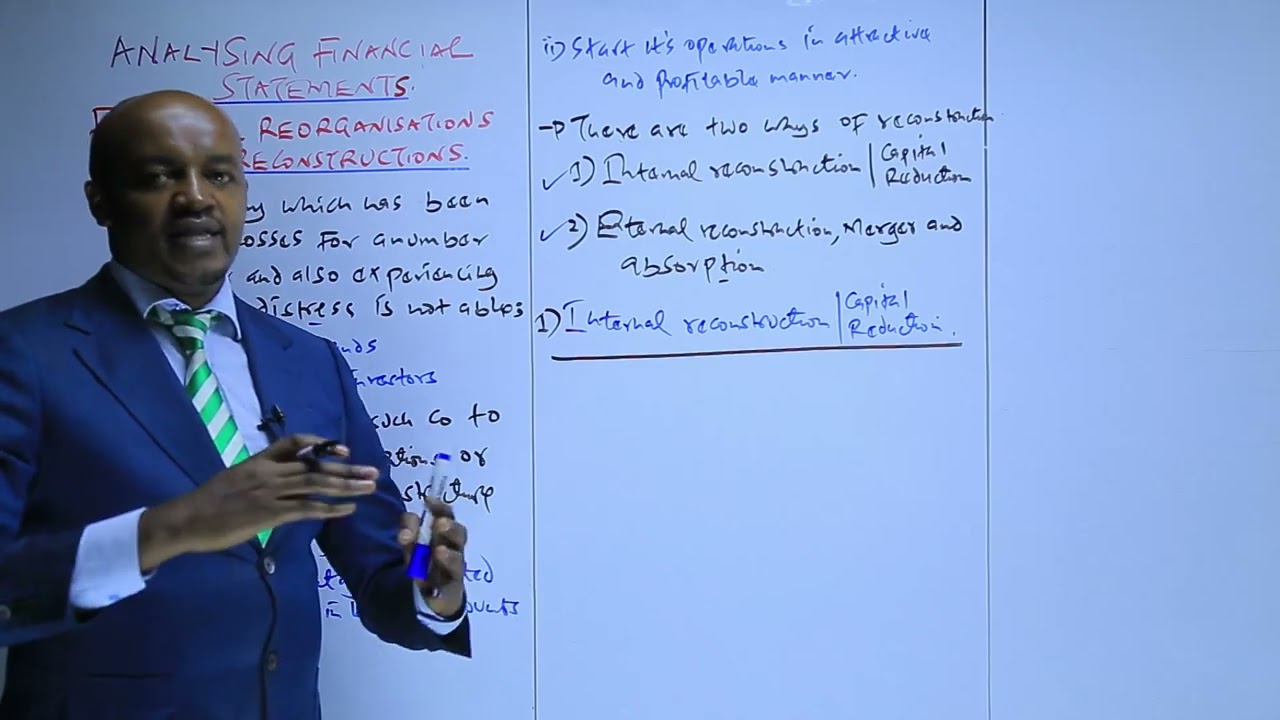 ANALYSING FINANCIAL
STATEMENTS.
REORGANISATIONS
RECONSTRUCTIONS.
which has been
losses for anumber
and also experiencing
distress is not ables
investors
such co to
or
in
ii) Start it's operations in attractive
and profitable manner.
→ There are two ways of reconstruction
✓ 1) Internal reconstruction | Capital
Reduction
✓ 2) External reconstruction, Merger and
absorption
1) Internal reconstruction | Capital
Reduction.